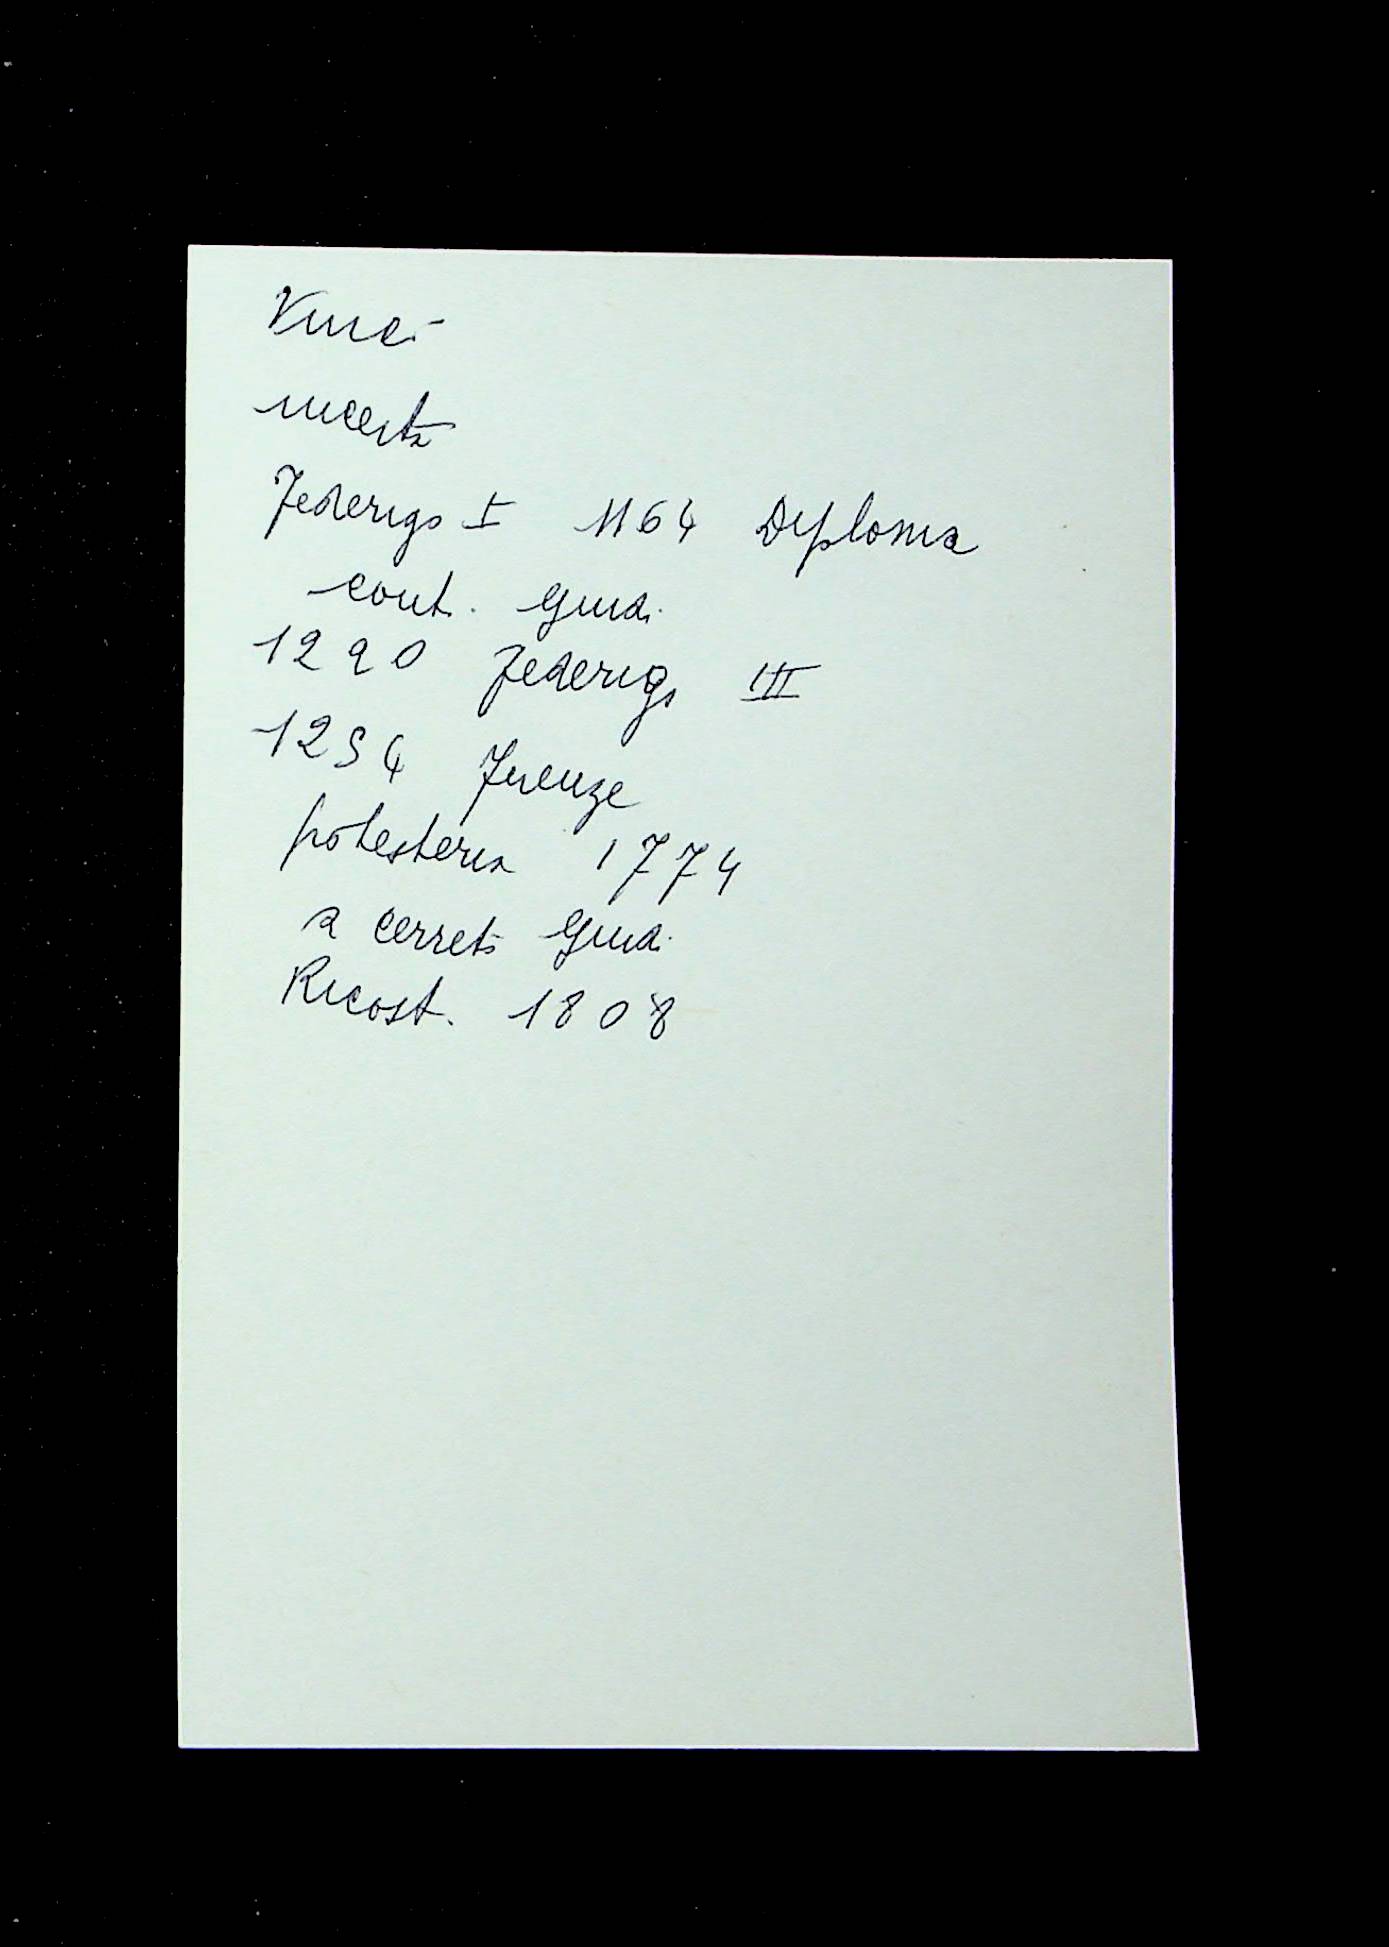 Vinci
incerta
Federigo I 1164 Diploma
cont. Guid.
1220 Federigo III
1254 Firenze
potesteria 1774
a Cerreto Guidi
Ricost. 1808